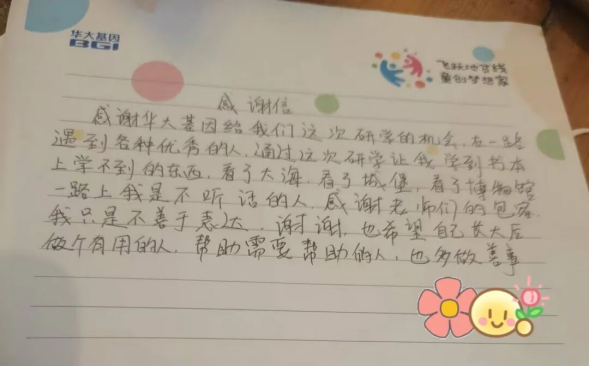 华大基因
BGI
飞跃地平线
童创梦想家
感谢信
感谢华大基因给我们这次研学的机会,在一路
遇到各种优秀的人,通过这次研学让我学到书本
上学不到的东西,看了大海,看了城堡,看了博物馆
一路上我是不听话的人,感谢老师们的包容,
我只是不善于表达,谢谢,也希望自己长大后
做个有用的人,帮助需要帮助的人,也多做善事